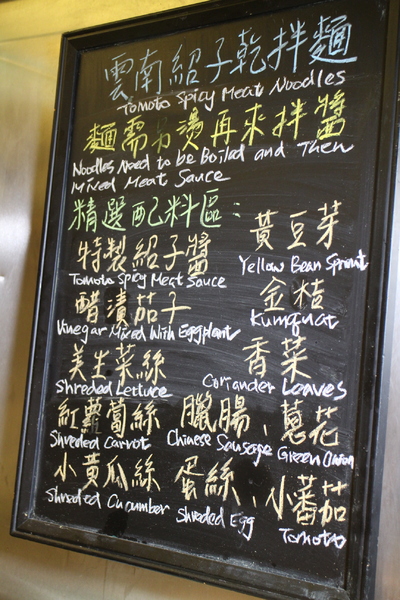 雲南紹子乾拌麵
Tomoto Spicy Meat Noodles
麵需另燙再來拌醬
Noodles Need to be Boilad and Then
Mixed Meat Sauce
精選配料區：
特製紹子醬
Tomoto Spicy Meat Sauce
黃豆芽
Yellow Bean Sprout
醋漬茄子
Vinegar Mixed With Eggplant
金桔
Kumquat
美生菜絲
Shreded Lettuce
香菜
Coriander Leaves
紅蘿蔔絲
Shreded Carrot
臘腸、蔥花
Chinese Sausage Green Onion
小黃瓜絲
Shreded Cucumber
蛋絲、小蕃茄
Shreded Egg
Tomoto